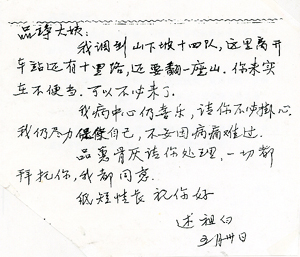 品诗大嫂：
我调到山下坡十四队，这里离开
车站还有十里路，还要翻一座山。你来实
在不便当。可以不必来了。
我病中心仍喜乐，请你不必挂心。
我仍尽力保使自己，不至因病痛难过。
品蕙骨灰请你处理，一切都
拜托你，我都同意。
纸短情长 祝你好
述祖白
五月卅日